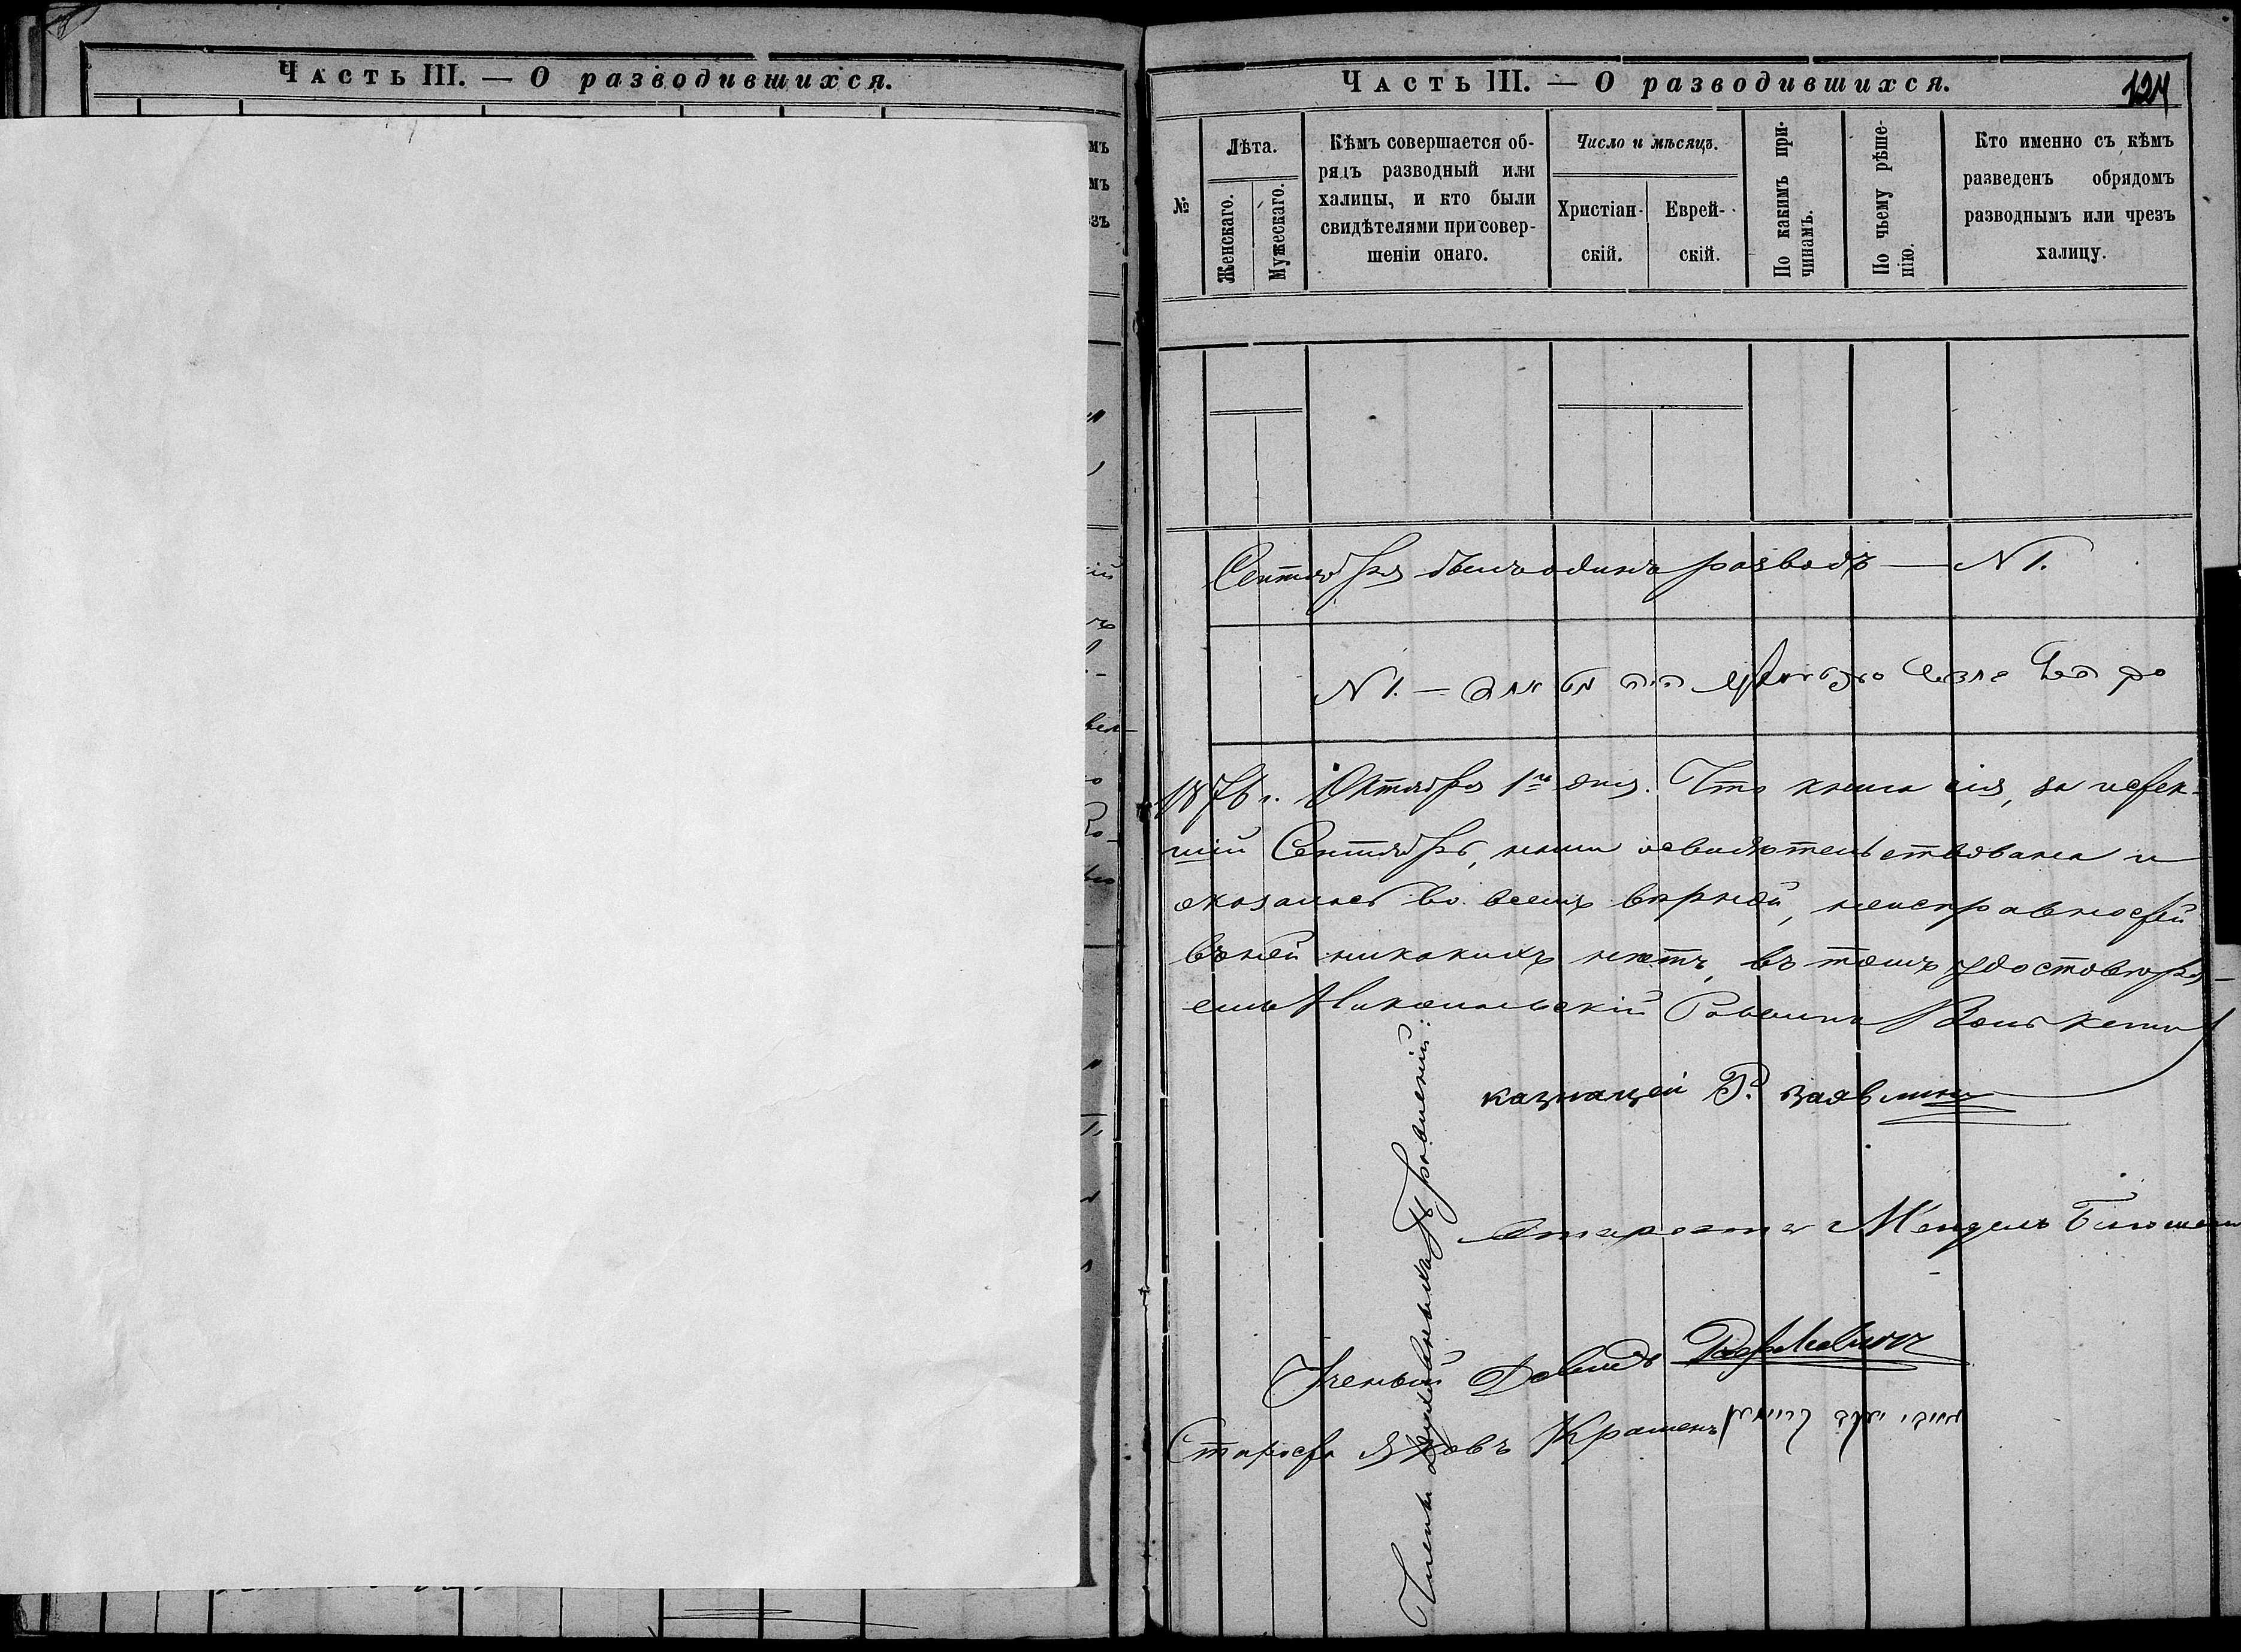 Часть III. — О разводившихся.
Часть III. — О разводившихся.
124
№
Лѣта.
Женскаго.
Мужескаго.
Кѣмъ совершается об-
рядъ разводный или
халицы, и кто были
свидѣтелями при совер-
шеніи онаго.
Число и мѣсяцъ.
Христіан-
скій.
Еврей-
скій.
По какимъ при-
чинамъ.
По чьему рѣше-
нію.
Кто именно съ кѣмъ
разведенъ обрядомъ
разводнымъ или чрезъ
халицу.
Сентября былъ одинъ разводъ — N 1.
N 1. —
1876 г. Октября 1го дня. Что книга сія, за истек-
шій Сентябрь, нами освидѣтельствована и
оказалась во всемъ вѣрной, неисправностей
въ ней никакихъ нѣтъ, въ томъ удостовѣря-
емъ Никольскій Раввинъ
казначей Р.
староста Мендель
Ученый Давидъ
Староста Яковъ Крамень
Члены Духовныхъ Правленій: